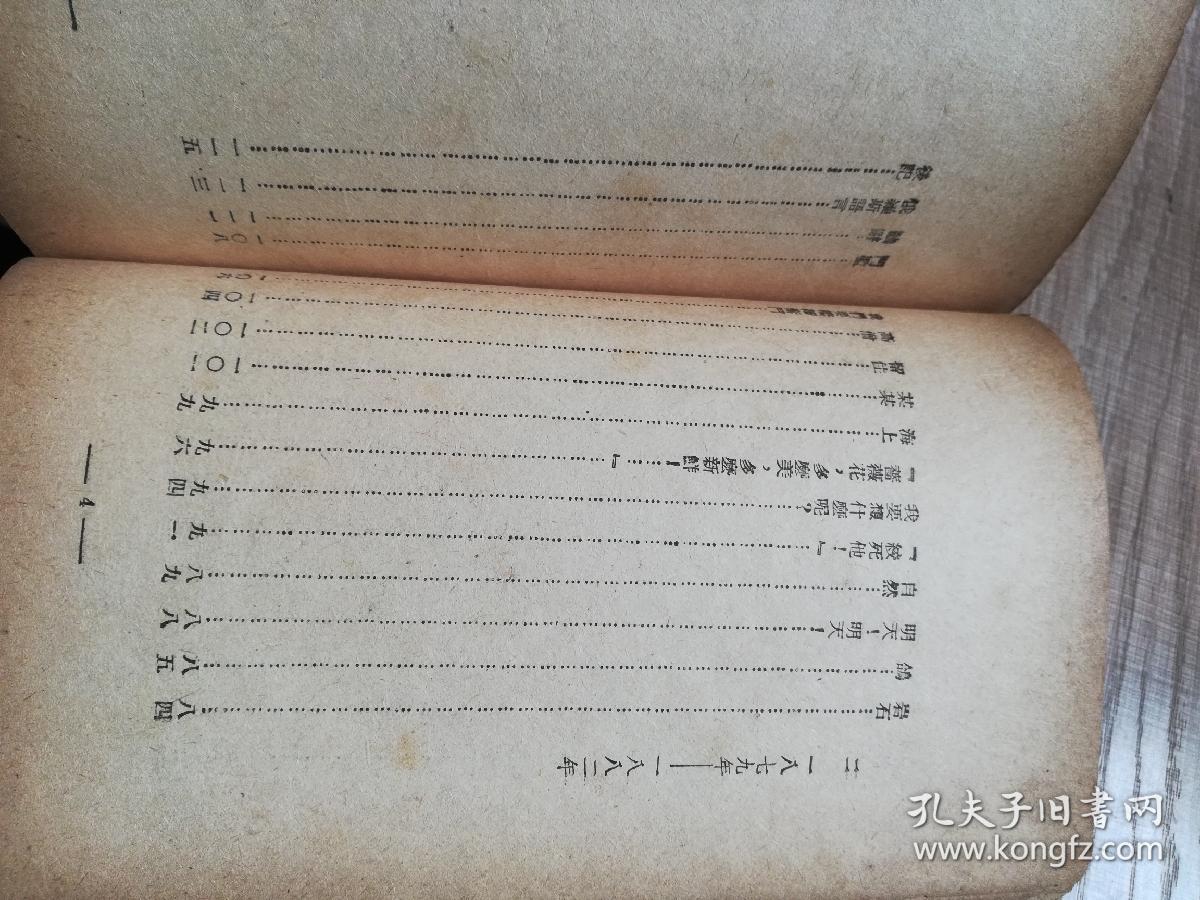 二 一八七九年——一八八二年
岩石……八四
鴿……八五
明天！明天！……八八
自然……八九
『絞死他！』……九一
我要想什麼呢？……九四
『薔薇花，多麼美，多麼新鮮！……』……九六
海上……九九
某某……一〇一
留住……一〇二
高僧……一〇四
我們要繼續奮鬥……一〇五
門檻……一〇六
—4—
俄羅斯語言……一一三
後記……一一五
孔夫子旧书网
www.kongfz.com